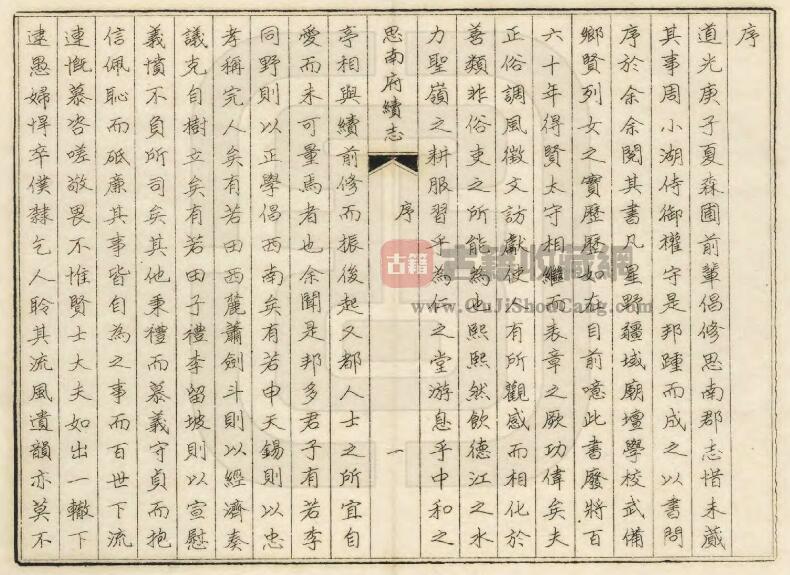 序
道光庚子夏森圃前輩倡修思南郡志惜未蕆
其事周小湖侍御權守是邦踵而成之以書問
序於余余閱其書凡星野疆域廟壇學校武備
鄉賢列女之實歷歷如在目前噫此書廢將百
六十年得賢太守相繼而表章之厥功偉矣夫
正俗調風徵文訪獻使人有所觀感而相化於
善類非俗吏之所能為也熙熙然飲德江之水
力聖嶺之耕服習乎為仁之堂游息乎中和之
思南府續志
序
一
亭相與續前修而振後起又都人士之所宜自
愛而未可量焉者也余聞是邦多君子有若李
同野則以正學倡西南矣有若申天錫則以忠
孝稱完人矣有若田西麓蕭劍斗則以經濟奏
議克自樹立矣有若田子禮李留坡則以宣慰
義憤不負所司矣其他秉禮而慕義守貞而抱
信佩恥而砥廉其事皆自為之事而百世下流
連慨慕咨嗟敬畏不惟賢士大夫如出一轍下
逮愚婦悍卒僕隸乞人聆其流風遺韻亦莫不
古籍
古籍收藏網
www.GuJiShooCang.com